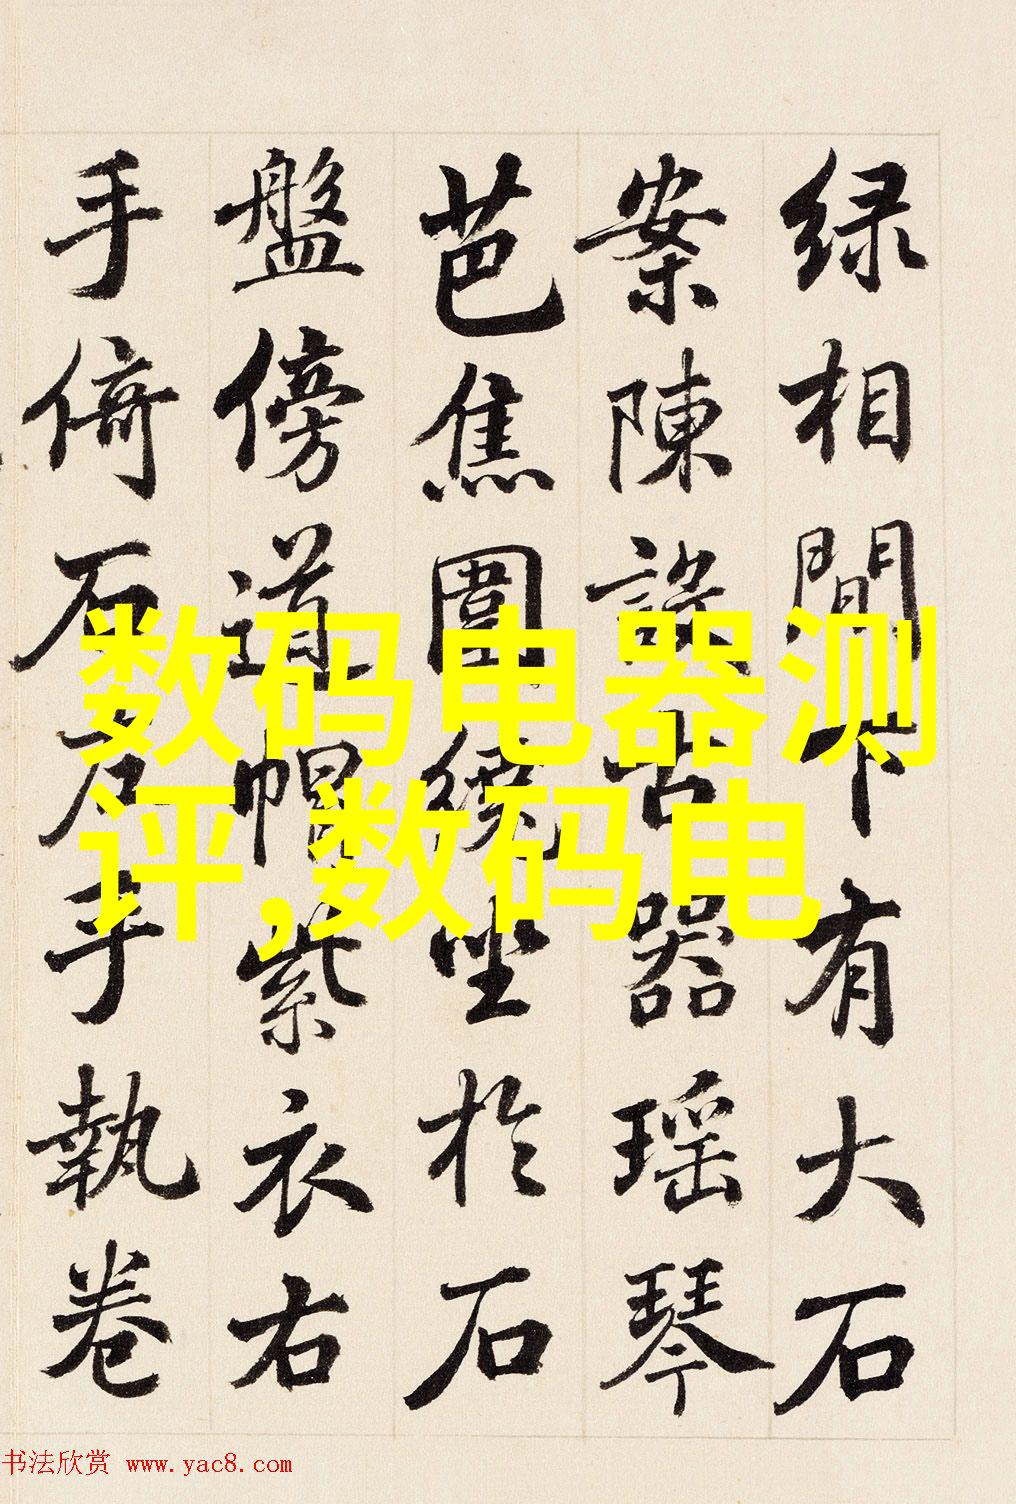 绿相間下有大石
案陳設古器瑶琴
芭焦圍繞坐於石
盤傍道帽紫衣右
手倚石左手執卷
数码电器测
评,数码电
书法欣赏 www.yac8.com